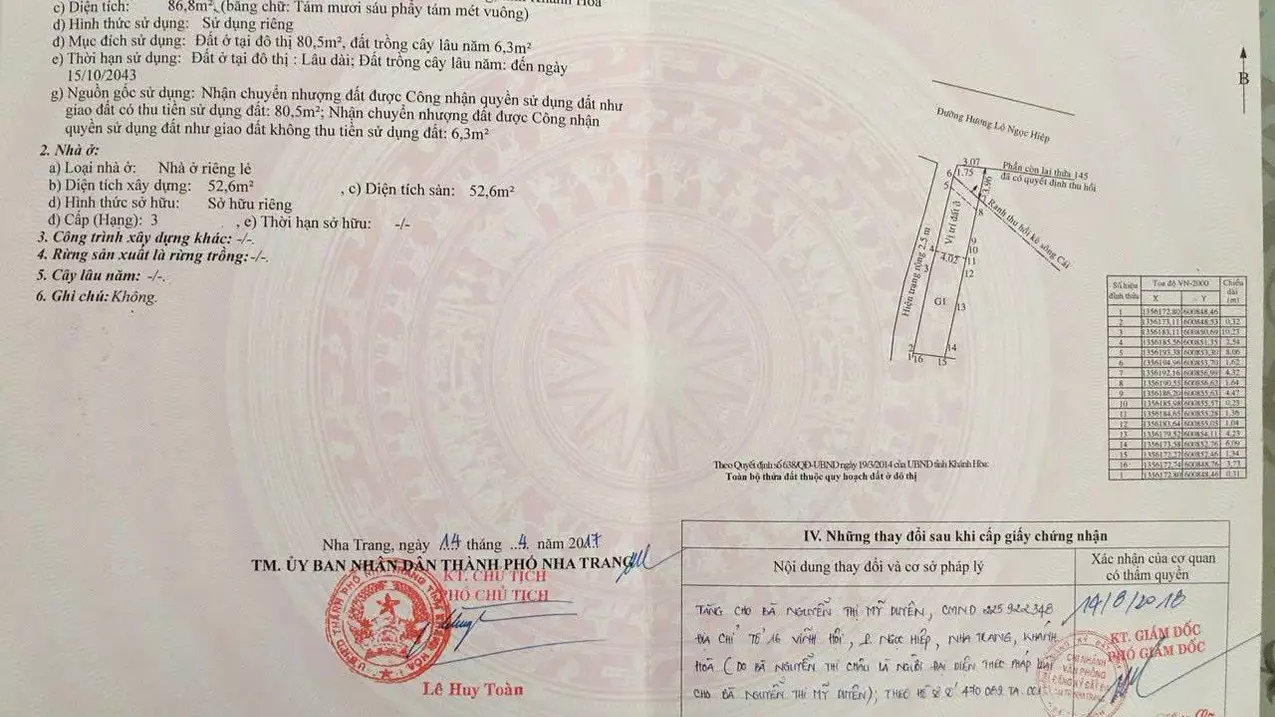 c) Diện tích: 86,8m², (bằng chữ: Tám mươi sáu phẩy tám mét vuông)
d) Hình thức sử dụng: Sử dụng riêng
đ) Mục đích sử dụng: Đất ở tại đô thị 80,5m², đất trồng cây lâu năm 6,3m²
e) Thời hạn sử dụng: Đất ở tại đô thị : Lâu dài; Đất trồng cây lâu năm: đến ngày
15/10/2043
g) Nguồn gốc sử dụng: Nhận chuyển nhượng đất được Công nhận quyền sử dụng đất như
giao đất có thu tiền sử dụng đất: 80,5m²; Nhận chuyển nhượng đất được Công nhận
quyền sử dụng đất như giao đất không thu tiền sử dụng đất: 6,3m²
2. Nhà ở:
a) Loại nhà ở: Nhà ở riêng lẻ
b) Diện tích xây dựng: 52,6m² , c) Diện tích sàn: 52,6m²
d) Hình thức sở hữu: Sở hữu riêng
đ) Cấp (Hạng): 3 , e) Thời hạn sở hữu: -/-
3. Công trình xây dựng khác: -/-.
4. Rừng sản xuất là rừng trồng: -/-.
5. Cây lâu năm: -/-.
6. Ghi chú: Không.
Nha Trang, ngày 14 tháng ..4. năm 2017
TM. ỦY BAN NHÂN DÂN THÀNH PHỐ NHA TRANG
KT. CHỦ TỊCH
PHÓ CHỦ TỊCH
Lê Huy Toàn
B
Đường Hương Lộ Ngọc Hiệp
3.07
6 1.75
Phần còn lại thửa 145
đã có quyết định thu hồi
5
3.96
8
Ranh thu hồi kè sông Cái
Vị trí đất ở
Hiện trạng rộng 2.5 m
9
4 4.02 10
11
3 12
G1
13
2 14
1 16 15
Số hiệu đỉnh thửa Tọa độ VN-2000 Chiều dài (m)
X Y
1 1356172,80 600848,46
2 1356173,11 600848,53 0,32
3 1356183,11 600850,69 10,23
4 1356185,56 600851,35 2,54
5 1356193,38 600853,30 8,06
6 1356194,96 600853,70 1,62
7 1356192,16 600856,99 4,32
8 1356190,55 600856,62 1,64
9 1356186,20 600855,63 4,47
10 1356185,98 600855,57 0,23
11 1356184,65 600855,28 1,36
12 1356183,64 600855,03 1,04
13 1356179,52 600854,11 4,23
14 1356173,58 600852,76 6,09
15 1356172,27 600852,46 1,34
16 1356172,74 600848,76 3,73
1 1356172,80 600848,46 0,31
Theo Quyết định số 638/QĐ-UBND ngày 19/3/2014 của UBND tỉnh Khánh Hòa:
Toàn bộ thửa đất thuộc quy hoạch đất ở đô thị
IV. Những thay đổi sau khi cấp giấy chứng nhận
Nội dung thay đổi và cơ sở pháp lý
Xác nhận của cơ quan
có thẩm quyền
TẶNG CHO BÀ NGUYỄN THỊ MỸ DUYÊN, CMND 225922348
ĐỊA CHỈ TỔ 16 VĨNH HỘI, P. NGỌC HIỆP, NHA TRANG, KHÁNH
HOÀ (DO BÀ NGUYỄN THỊ CHÂU LÀ NGƯỜI ĐẠI DIỆN THEO PHÁP LUẬT
CHO BÀ NGUYỄN THỊ MỸ DUYÊN); THEO HỒ SƠ SỐ 470 082. TA. 001
14/8/2018
KT. GIÁM ĐỐC
PHÓ GIÁM ĐỐC
CHI NHÁNH
VĂN PHÒNG
ĐĂNG KÝ ĐẤT ĐAI